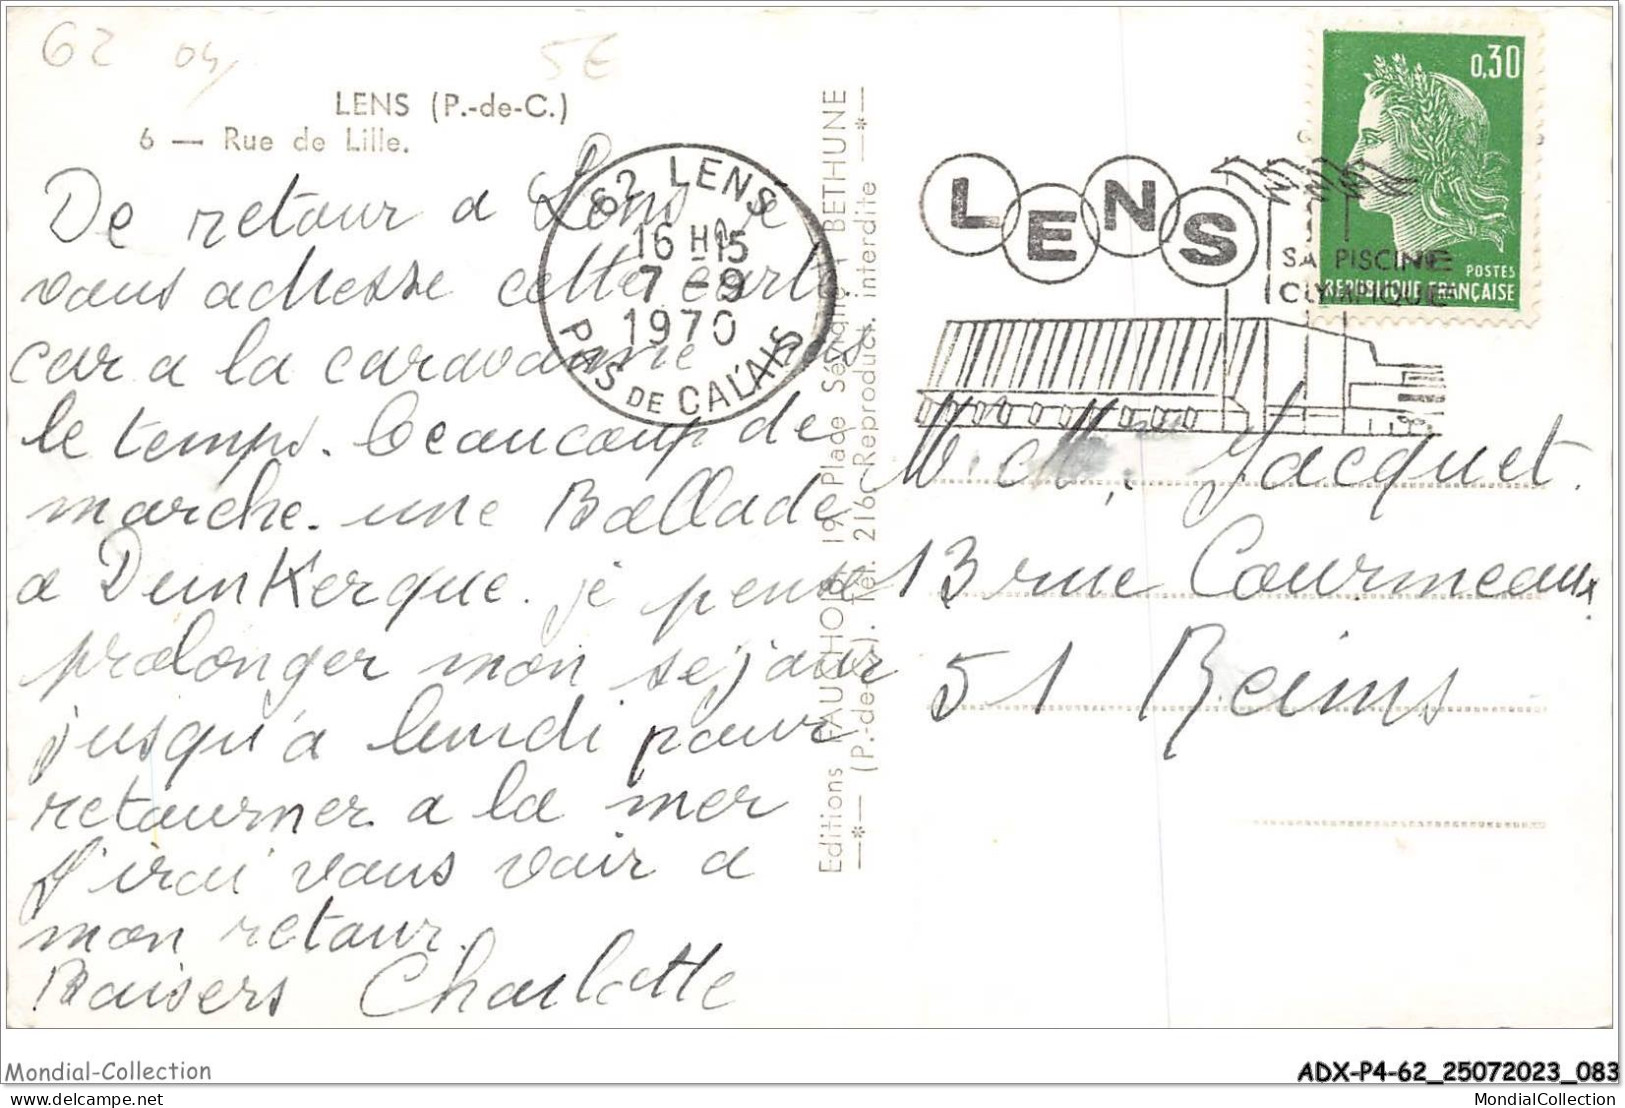 62 04 5E
LENS (P.-de-C.)
6 — Rue de Lille.
De retour a Lens je
vous adresse cette carte
car a la caravanne
le temps. beaucoup de
marche. une Ballade
a DunKerque. je pense
prolonger mon sejour
jusqu'a lundi pour
retourner a la mer
J'irai vous voir a
mon retour.
Baisers Charlotte
62 LENS
16 H 15
7 - 9
1970
PAS DE CALAIS
Editions FAUCHOIS 19, Place Sévigné BETHUNE
—*— (P.-de-C.). Tél. 216 - Reproduct. interdite —*—
LENS
SA PISCINE
OLYMPIQUE
0,30
POSTES
REPUBLIQUE FRANÇAISE
Jacquet.
13 rue Courmeaux
51 Reims
Mondial-Collection
ADX-P4-62_25072023_083
delcampe.net
MondialCollection